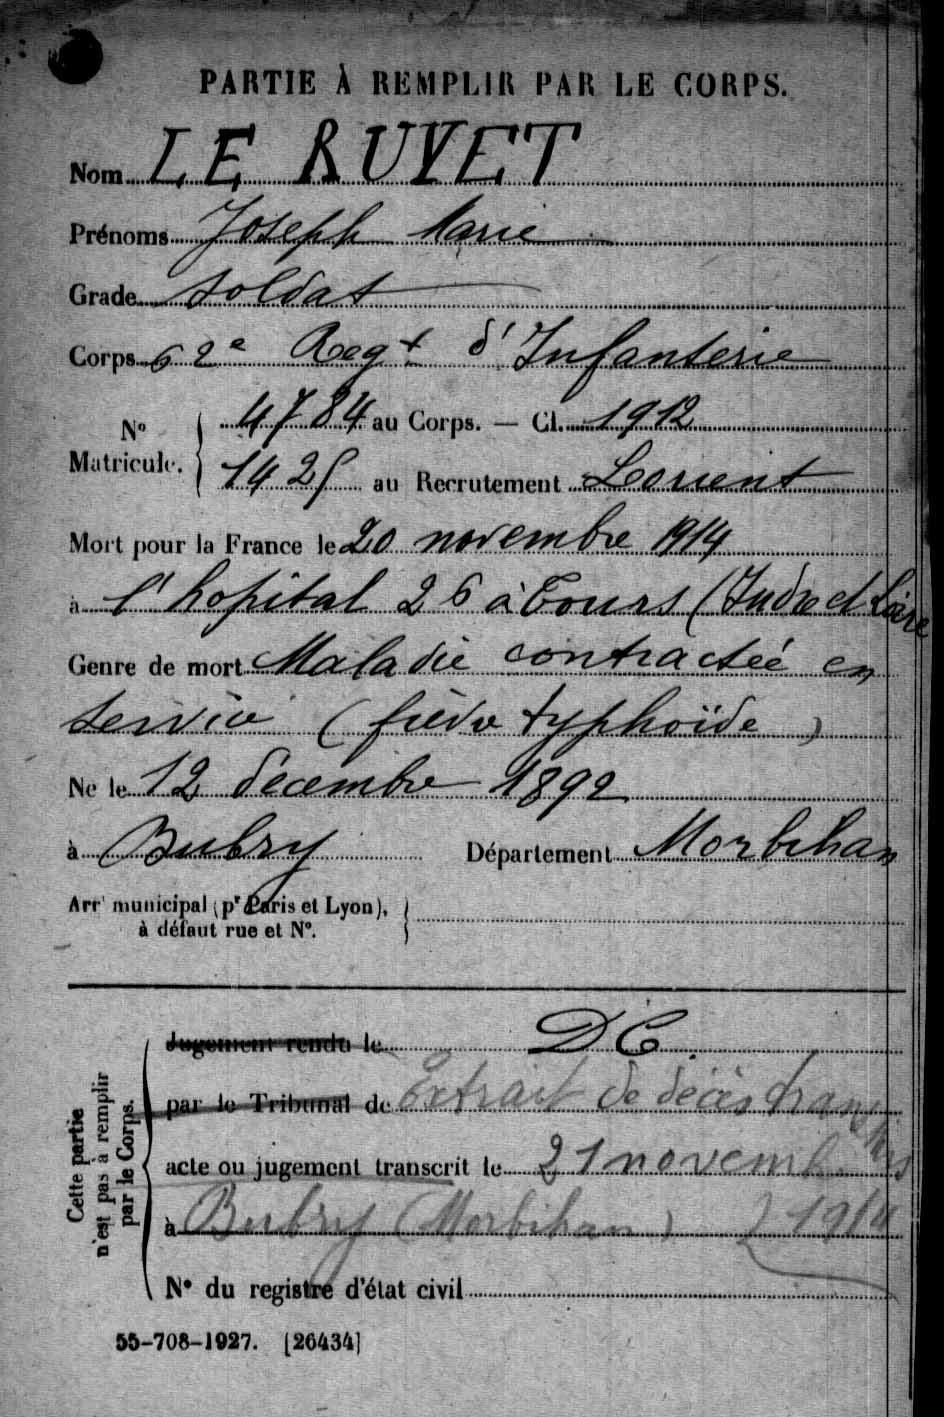 PARTIE À REMPLIR PAR LE CORPS.
Nom LE RUYET
Prénoms Joseph Marie
Grade soldat
Corps 62e Regt d'Infanterie
No Matricule. 4784 au Corps. — Cl. 1912
1425 au Recrutement Lorient
Mort pour la France le 20 novembre 1914
à l'hopital 26 à Tours (Indre et Loire
Genre de mort Maladie contractée en
service (fièvre typhoïde)
Né le 12 décembre 1892
à Bubry Département Morbihan
Arrt municipal (pr Paris et Lyon),
à défaut rue et No.
Cette partie
n'est pas à remplir
par le Corps.
Jugement rendu le DC.
par le Tribunal de Extrait de décès transmis
acte ou jugement transcrit le 21 novembre
à Bubry (Morbihan) 1914
No du registre d'état civil
55-708-1927. [26434]